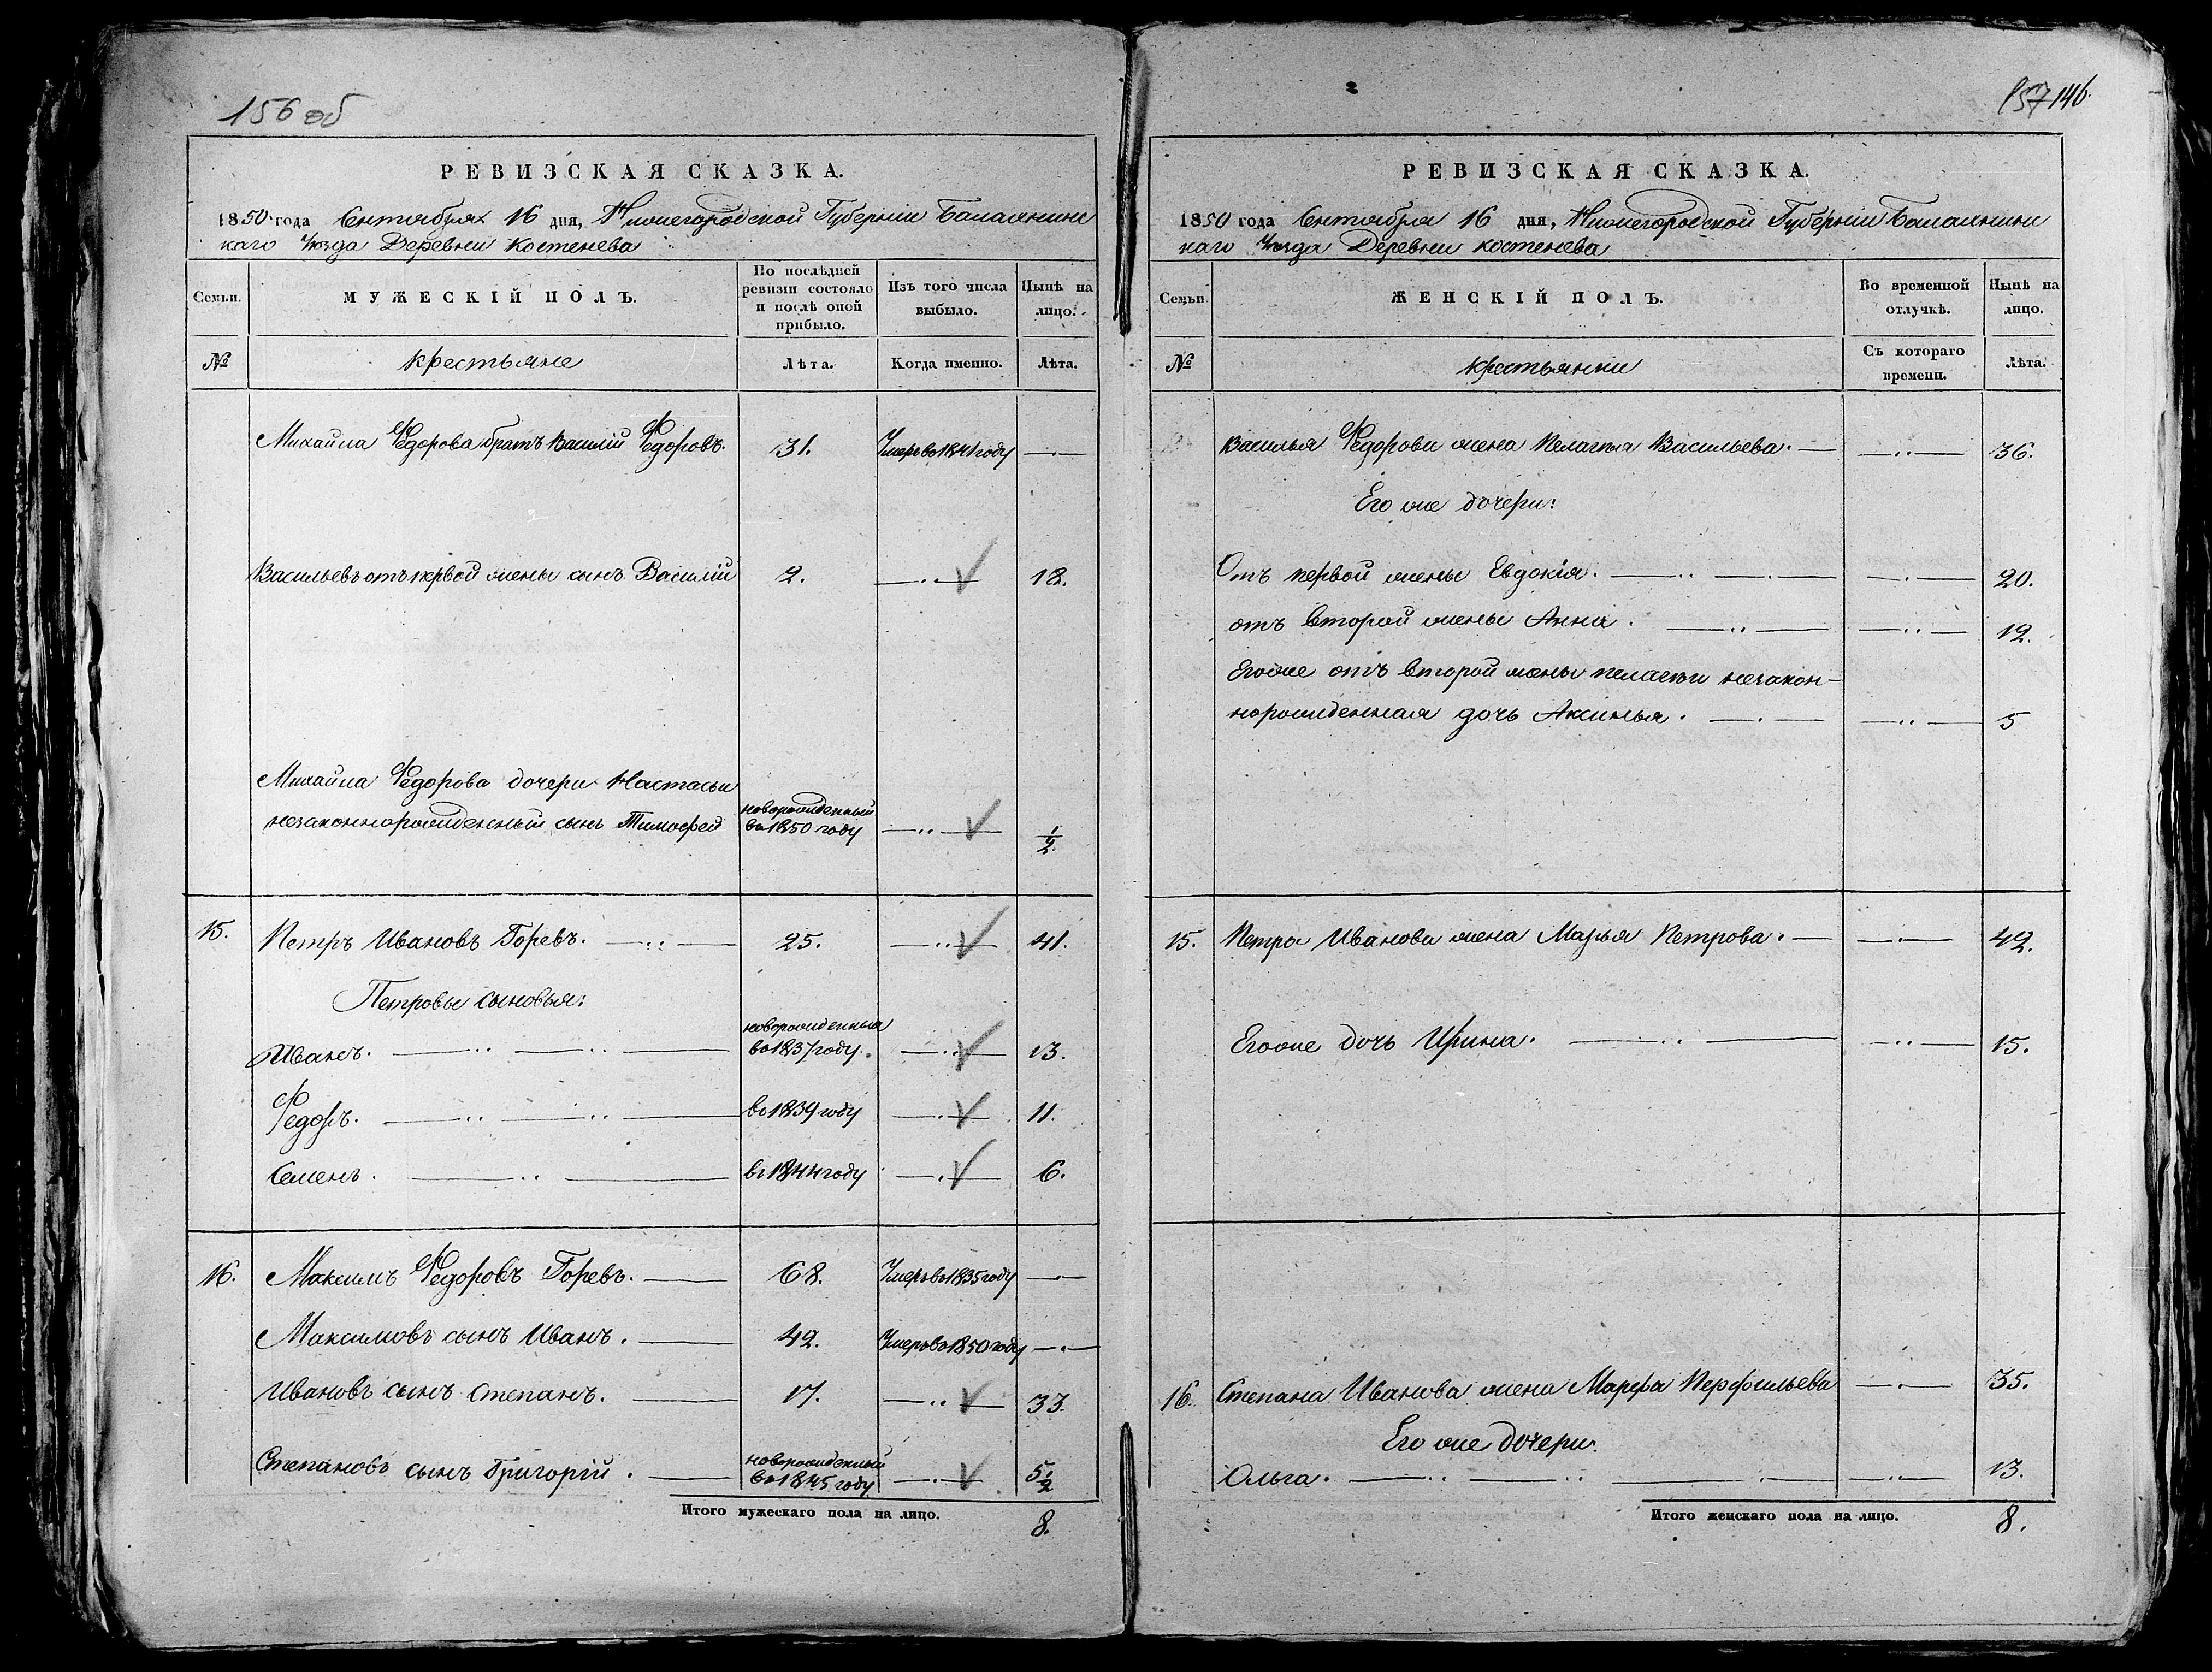 156 об
РЕВИЗСКАЯ СКАЗКА.
1850 года Сентября 16 дня, Нижегородской Губерніи Балахнинс
каго Уезда Деревни Костенева
Семьи.
МУЖЕСКІЙ ПОЛЪ.
По послѣдней ревизіи состояло и послѣ оной прибыло.
Изъ того числа выбыло.
Нынѣ на лицо.
№
крестьяне
Лѣта.
Когда именно.
Лѣта.
Михайла Федорова братъ Василій Федоровъ. 31. Умеръ во 1841 году —·—
Васильевъ отъ первой жены сынъ Василій 2. —··— 18.
Михайла Федорова дочери Настасьи
незаконнорожденный сынъ Тимофей новорожденный во 1850 году —··— 1/2
15. Петръ Ивановъ Горевъ. —··— 25. —··— 41.
Петровы сыновья:
Иванъ. —··— —··— новорожденныя во 1837 году. —··— 13.
Федоръ. —··— —··— во 1839 году —·— 11.
Семенъ. —··— во 1844 году —·— 6.
16. Максимъ Федоровъ Горевъ. — 68. Умеръ во 1835 году —·—
Максимовъ сынъ Иванъ. — 42. Умеръ во 1850 году —·—
Ивановъ сынъ Степанъ. — 17. —··— 33.
Степановъ сынъ Григорій. — новорожденный во 1845 году —·— 5 1/2
Итого мужескаго пола на лицо. 8.
157 146.
РЕВИЗСКАЯ СКАЗКА.
1850 года Сентября 16 дня, Нижегородской Губерніи Балахнинс
каго Уезда Деревни Костенева
Семьи.
ЖЕНСКІЙ ПОЛЪ.
Во временной отлучкѣ.
Нынѣ на лицо.
№
крестьянки
Съ котораго времени.
Лѣта.
Василья Федорова жена Пелагея Васильева. — —··— 36.
Его же дочери:
Отъ первой жены Евдокія. —··— —·— —·— 20.
отъ второй жены Анна. —··— —··— 12.
Егоже отъ второй жены пелагеи незакон-
норожденная дочь Аксинья. —·— —··— 5
15. Петра Иванова жена Марья Петрова. — —·— 42.
Егоже дочь Ирина. —··— —··— 15.
16. Степана Иванова жена Марфа Перфильева —·— 35.
Его же дочери.
Ольга. —··— —··— —·— —··— 13.
Итого женскаго пола на лицо. 8.